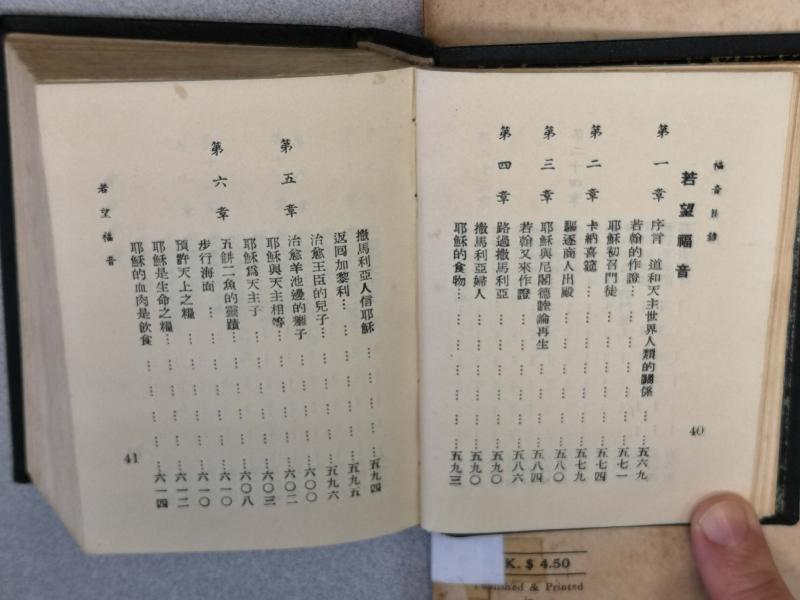 福音目錄
若望福音
第一章
序言 道和天主世界人類的關係… … …五六九
若翰的作證… … … … …五七一
耶穌初召門徒… … … … …五七四
第二章
卡納喜筵… … … … … …五七九
驅逐商人出殿… … … … …五八〇
第三章
耶穌與尼閣德睦論再生… … …五八四
若翰又來作證… … … … …五八六
第四章
路過撒馬利亞… … … … …五九〇
撒馬利亞婦人… … … … …五九〇
耶穌的食物… … … … … …五九三
40
撒馬利亞人信耶穌… … … …五九四
返回加黎利… … … … …五九五
治愈王臣的兒子… … … …五九六
第五章
治愈羊池邊的癱子… … … …六〇〇
耶穌與天主相等… … … …六〇二
耶穌爲天主子… … … … …六〇三
第六章
五餅二魚的靈蹟… … … …六〇八
步行海面… … … … … …六一〇
預許天上之糧… … … … …六一〇
耶穌是生命之糧… … … …六一二
耶穌的血肉是飲食… … … …六一四
若望福音
41
K. $ 4.50
Published & Printed
in